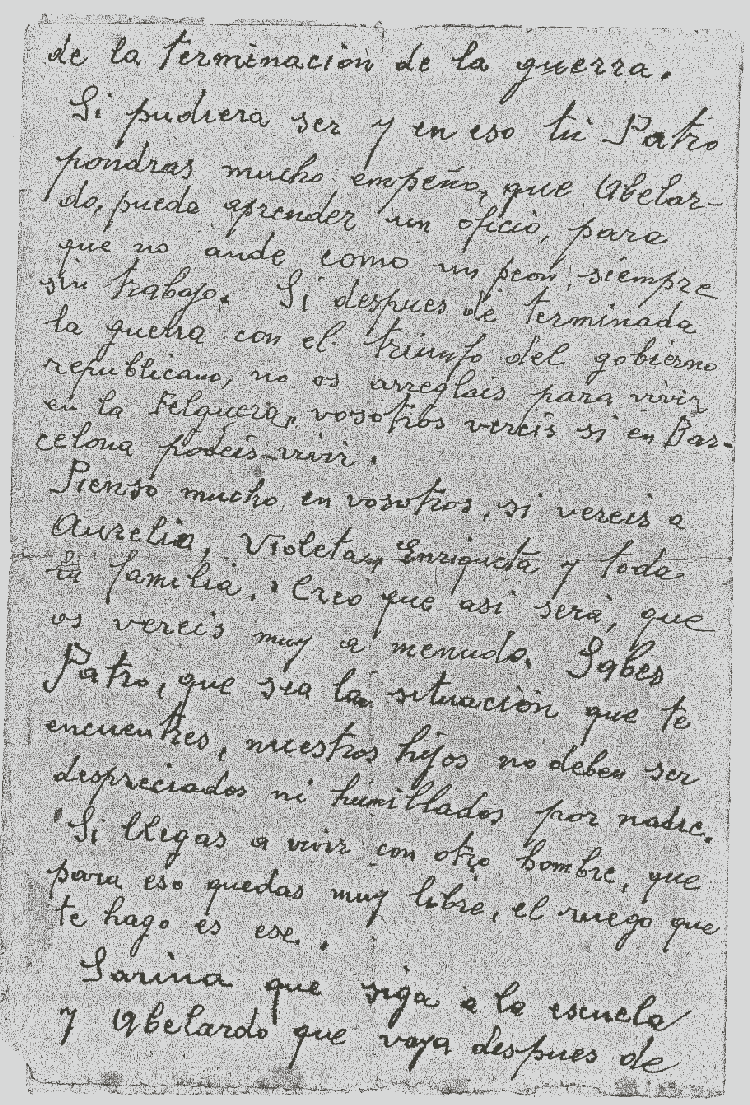 de la terminación de la guerra.
Si pudiera ser y en eso tú Patro
pondras mucho empeño, que Abelar-
do, pueda aprender un oficio, para
que no ande como un peon, siempre
sin trabajo. Si despues de terminada
la guerra con el triunfo del gobierno
republicano, no os arreglais para vivir
en la Felguera, vosotros vereis si en Bar-
celona podeis vivir.
Pienso mucho en vosotros, si vereis a
Aurelia, Violeta, Enriqueta y toda
la familia. Creo que asi será, que
os vereis muy a menudo. Sabes
Patro, que sea la situación que te
encuentres, nuestros hijos no deben ser
despreciados ni humillados por nadie.
Si llegas a vivir con otro hombre, que
para eso quedas muy libre, el ruego que
te hago es ese.
Sarina que siga a la escuela
y Abelardo que vaya despues de